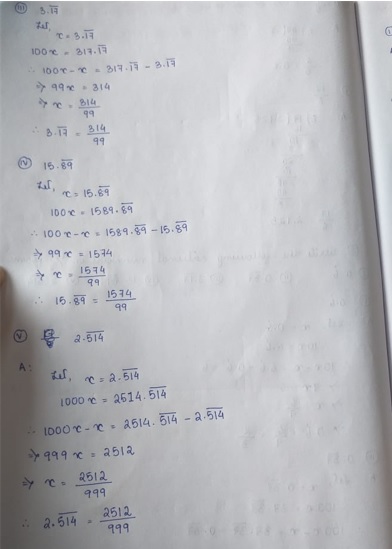 (iii) 3.1̅7̅
Let, x = 3.1̅7̅
100x = 317.1̅7̅
∴ 100x - x = 317.1̅7̅ - 3.1̅7̅
⇒ 99x = 314
⇒ x = 314/99
∴ 3.1̅7̅ = 314/99
(iv) 15.8̅9̅
Let, x = 15.8̅9̅
100x = 1589.8̅9̅
∴ 100x - x = 1589.8̅9̅ - 15.8̅9̅
⇒ 99x = 1574
⇒ x = 1574/99
∴ 15.8̅9̅ = 1574/99
(v) 2.5̅1̅4̅
A: Let, x = 2.5̅1̅4̅
1000x = 2514.5̅1̅4̅
∴ 1000x - x = 2514.5̅1̅4̅ - 2.5̅1̅4̅
⇒ 999x = 2512
⇒ x = 2512/999
∴ 2.5̅1̅4̅ = 2512/999